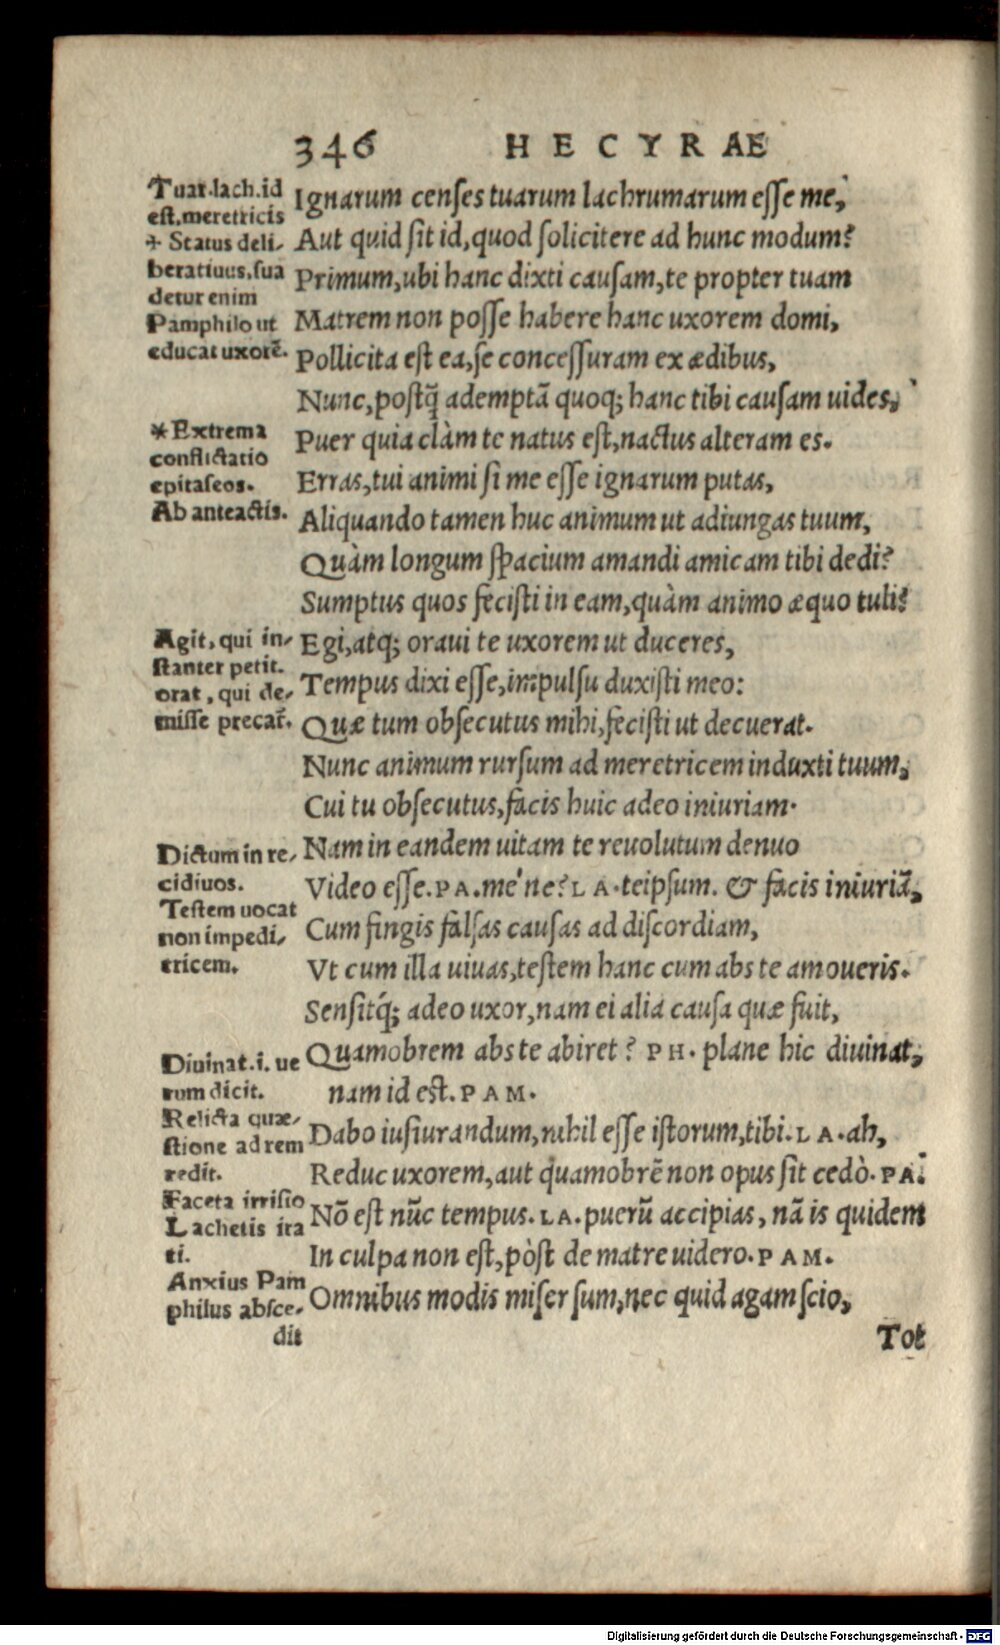 346 HECYRAE
Tuar.lach.id
est.meretricis
+ Status deli-
beratiuus.sua
detur enim
Pamphilo ut
educat uxorē.
*Extrema
conflictatio
epitaseos.
Ab anteactis.
Agit, qui in-
stanter petit.
orat, qui de-
misse precat̃.
Dictum in re-
cidiuos.
Testem uocat
non impedi-
tricem.
Diuinat.i. ue
rum dicit.
Relicta quæ-
stione ad rem
redit.
Faceta irrisio
Lachetis ira
ti.
Anxius Pam
philus absce-
dit
Ignarum censes tuarum lachrumarum esse me,
Aut quid sit id, quod solicitere ad hunc modum?
Primum, ubi hanc dixti causam, te propter tuam
Matrem non posse habere hanc uxorem domi,
Pollicita est ea, se concessuram ex ædibus,
Nunc, postq̃ ademptã quoq; hanc tibi causam uides,
Puer quia clàm te natus est, nactus alteram es.
Erras, tui animi si me esse ignarum putas,
Aliquando tamen huc animum ut adiungas tuum,
Quàm longum spacium amandi amicam tibi dedi?
Sumptus quos fecisti in eam, quàm animo æquo tuli?
Egi, atq; oraui te uxorem ut duceres,
Tempus dixi esse, impulsu duxisti meo:
Quæ tum obsecutus mihi, fecisti ut decuerat.
Nunc animum rursum ad meretricem induxti tuum,
Cui tu obsecutus, facis huic adeo iniuriam.
Nam in eandem uitam te reuolutum denuo
Video esse. PA. me'ne? LA. teipsum. & facis iniuriã,
Cum fingis falsas causas ad discordiam,
Vt cum illa uiuas, testem hanc cum abs te amoueris.
Sensitq́; adeo uxor, nam ei alia causa quæ fuit,
Quamobrem abs te abiret? PH. plane hic diuinat,
nam id est. PAM.
Dabo iusiurandum, nihil esse istorum, tibi. LA. ah,
Reduc uxorem, aut quamobrē non opus sit cedò. PA.
Nõ est nũc tempus. LA. puerũ accipias, nã is quidem
In culpa non est, pòst de matre uidero. PAM.
Omnibus modis miser sum, nec quid agam scio,
Tot
Digitalisierung gefördert durch die Deutsche Forschungsgemeinschaft - DFG